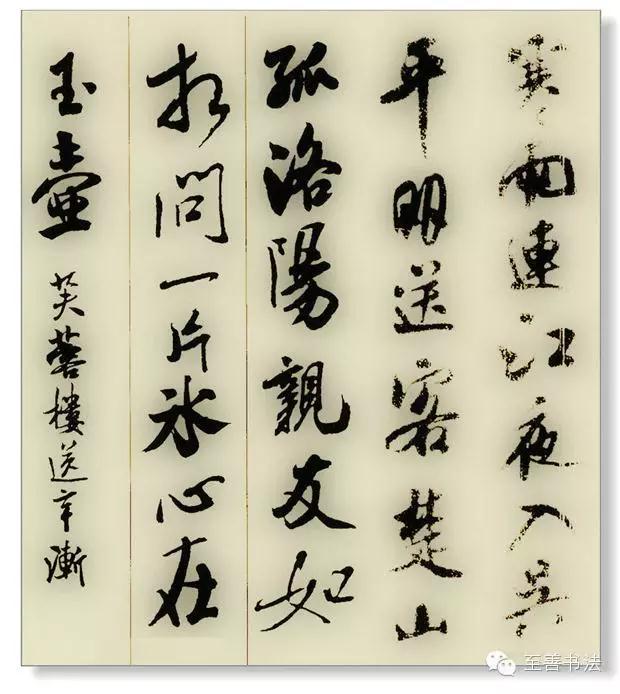 寒雨連江夜入吳
平明送客楚山
孤洛陽親友如
相問一片冰心在
玉壺 芙蓉樓送辛漸
至善书法